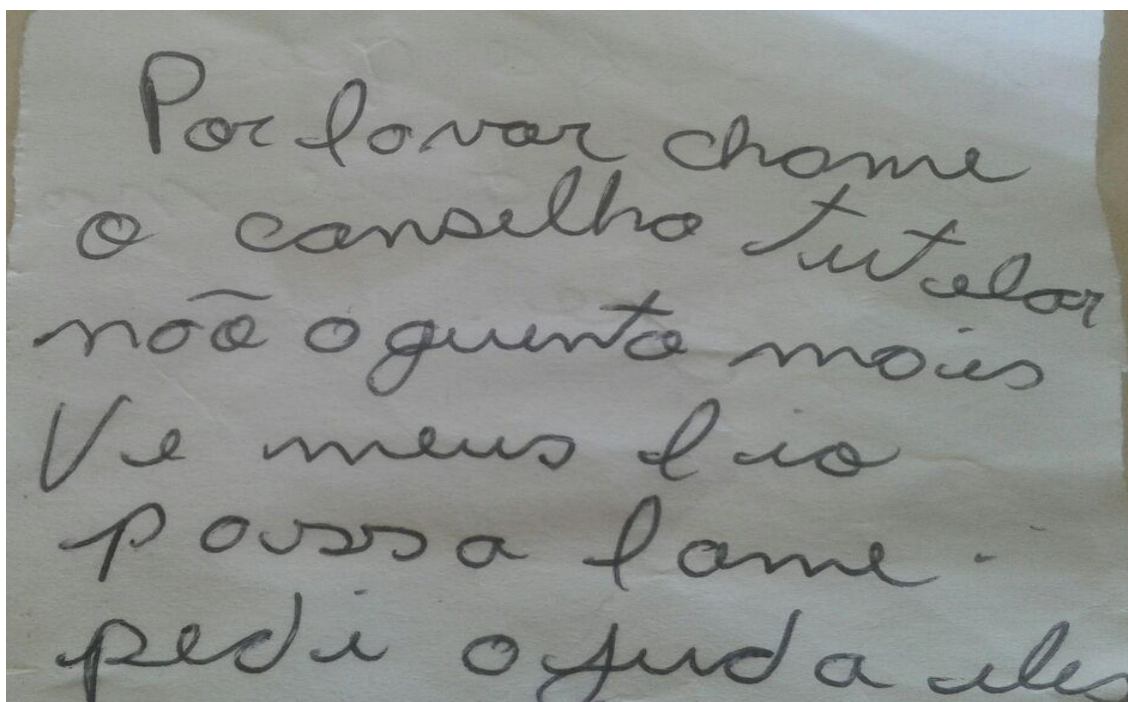 Por favor chame
o conselho tutelar
não aguento mais
Ve meus fio
passa fome
pedi ajuda eles